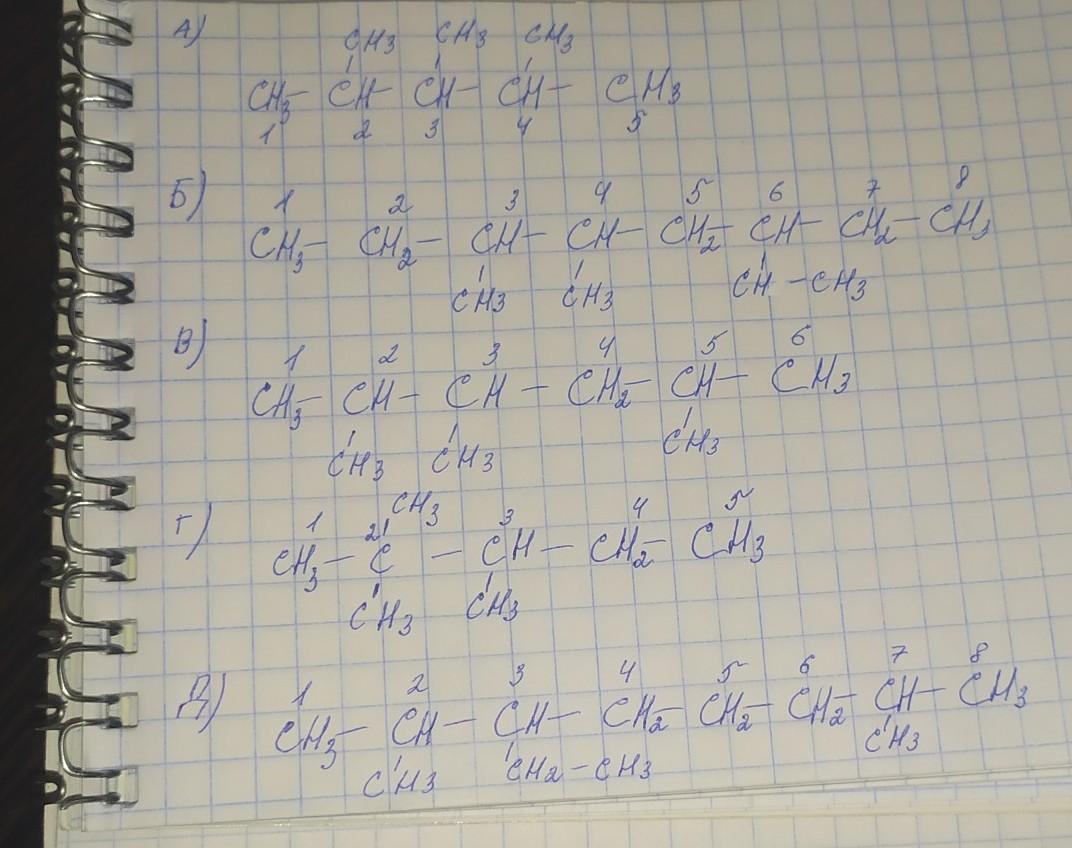 А) CH3 CH3 CH3
CH3- CH- CH- CH- CH3
1 2 3 4 5
Б) 1 2 3 4 5 6 7 8
CH3- CH2- CH- CH- CH2- CH- CH2- CH3
CH3 CH3 CH-CH3
В) 1 2 3 4 5 6
CH3- CH- CH - CH2- CH- CH3
CH3 CH3 CH3
CH3
Г) 1 2 3 4 5
CH3- C - CH- CH2- CH3
CH3 CH3
Д) 1 2 3 4 5 6 7 8
CH3- CH- CH- CH2- CH2- CH2- CH- CH3
CH3 CH2-CH3 CH3